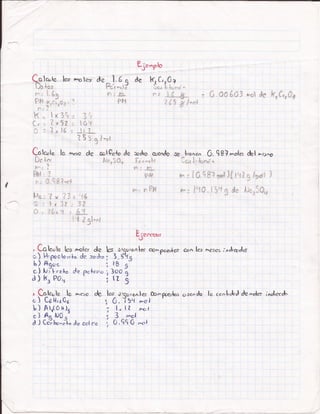 Ejemplo
Calcule los moles de 1.6 g de K₂Cr₂O₇
Datos Formula
m: 1.6g n: m/PM n: 1.6 g = 0.00603 mol de K₂Cr₂O₇
PM K₂Cr₂O₇: ?
n: ?
Cr = 2x52 = 104
Calcule la masa de sulfato de sodio cuando se tienen 0.987 moles del mismo
Datos Na₂SO₄ Formula
m: ? n: m/PM
n: 0.987 mol m: n PM m: 140.154 g de Na₂SO₄
Na: 2 x 23 : 46
S: 1 x 32 : 32
O: 16x4 : 64
142 g/mol
Ejercicio
. Calcule los moles de los siguientes compuestos con las masas indicadas
a) Hipoclorito de sodio : 3.54g
b) Agua : 18 g
c) Nitrato de potasio : 300 g
d) K₃ PO₄ : 12 g
. Calcule la masa de los siguientes compuestos usando la cantidad de moles indicada
b) Al(OH)₃ : 1.12 mol
c) Ag NO₃ : 3 mol
d) Carbonato de calcio : 0.990 mol